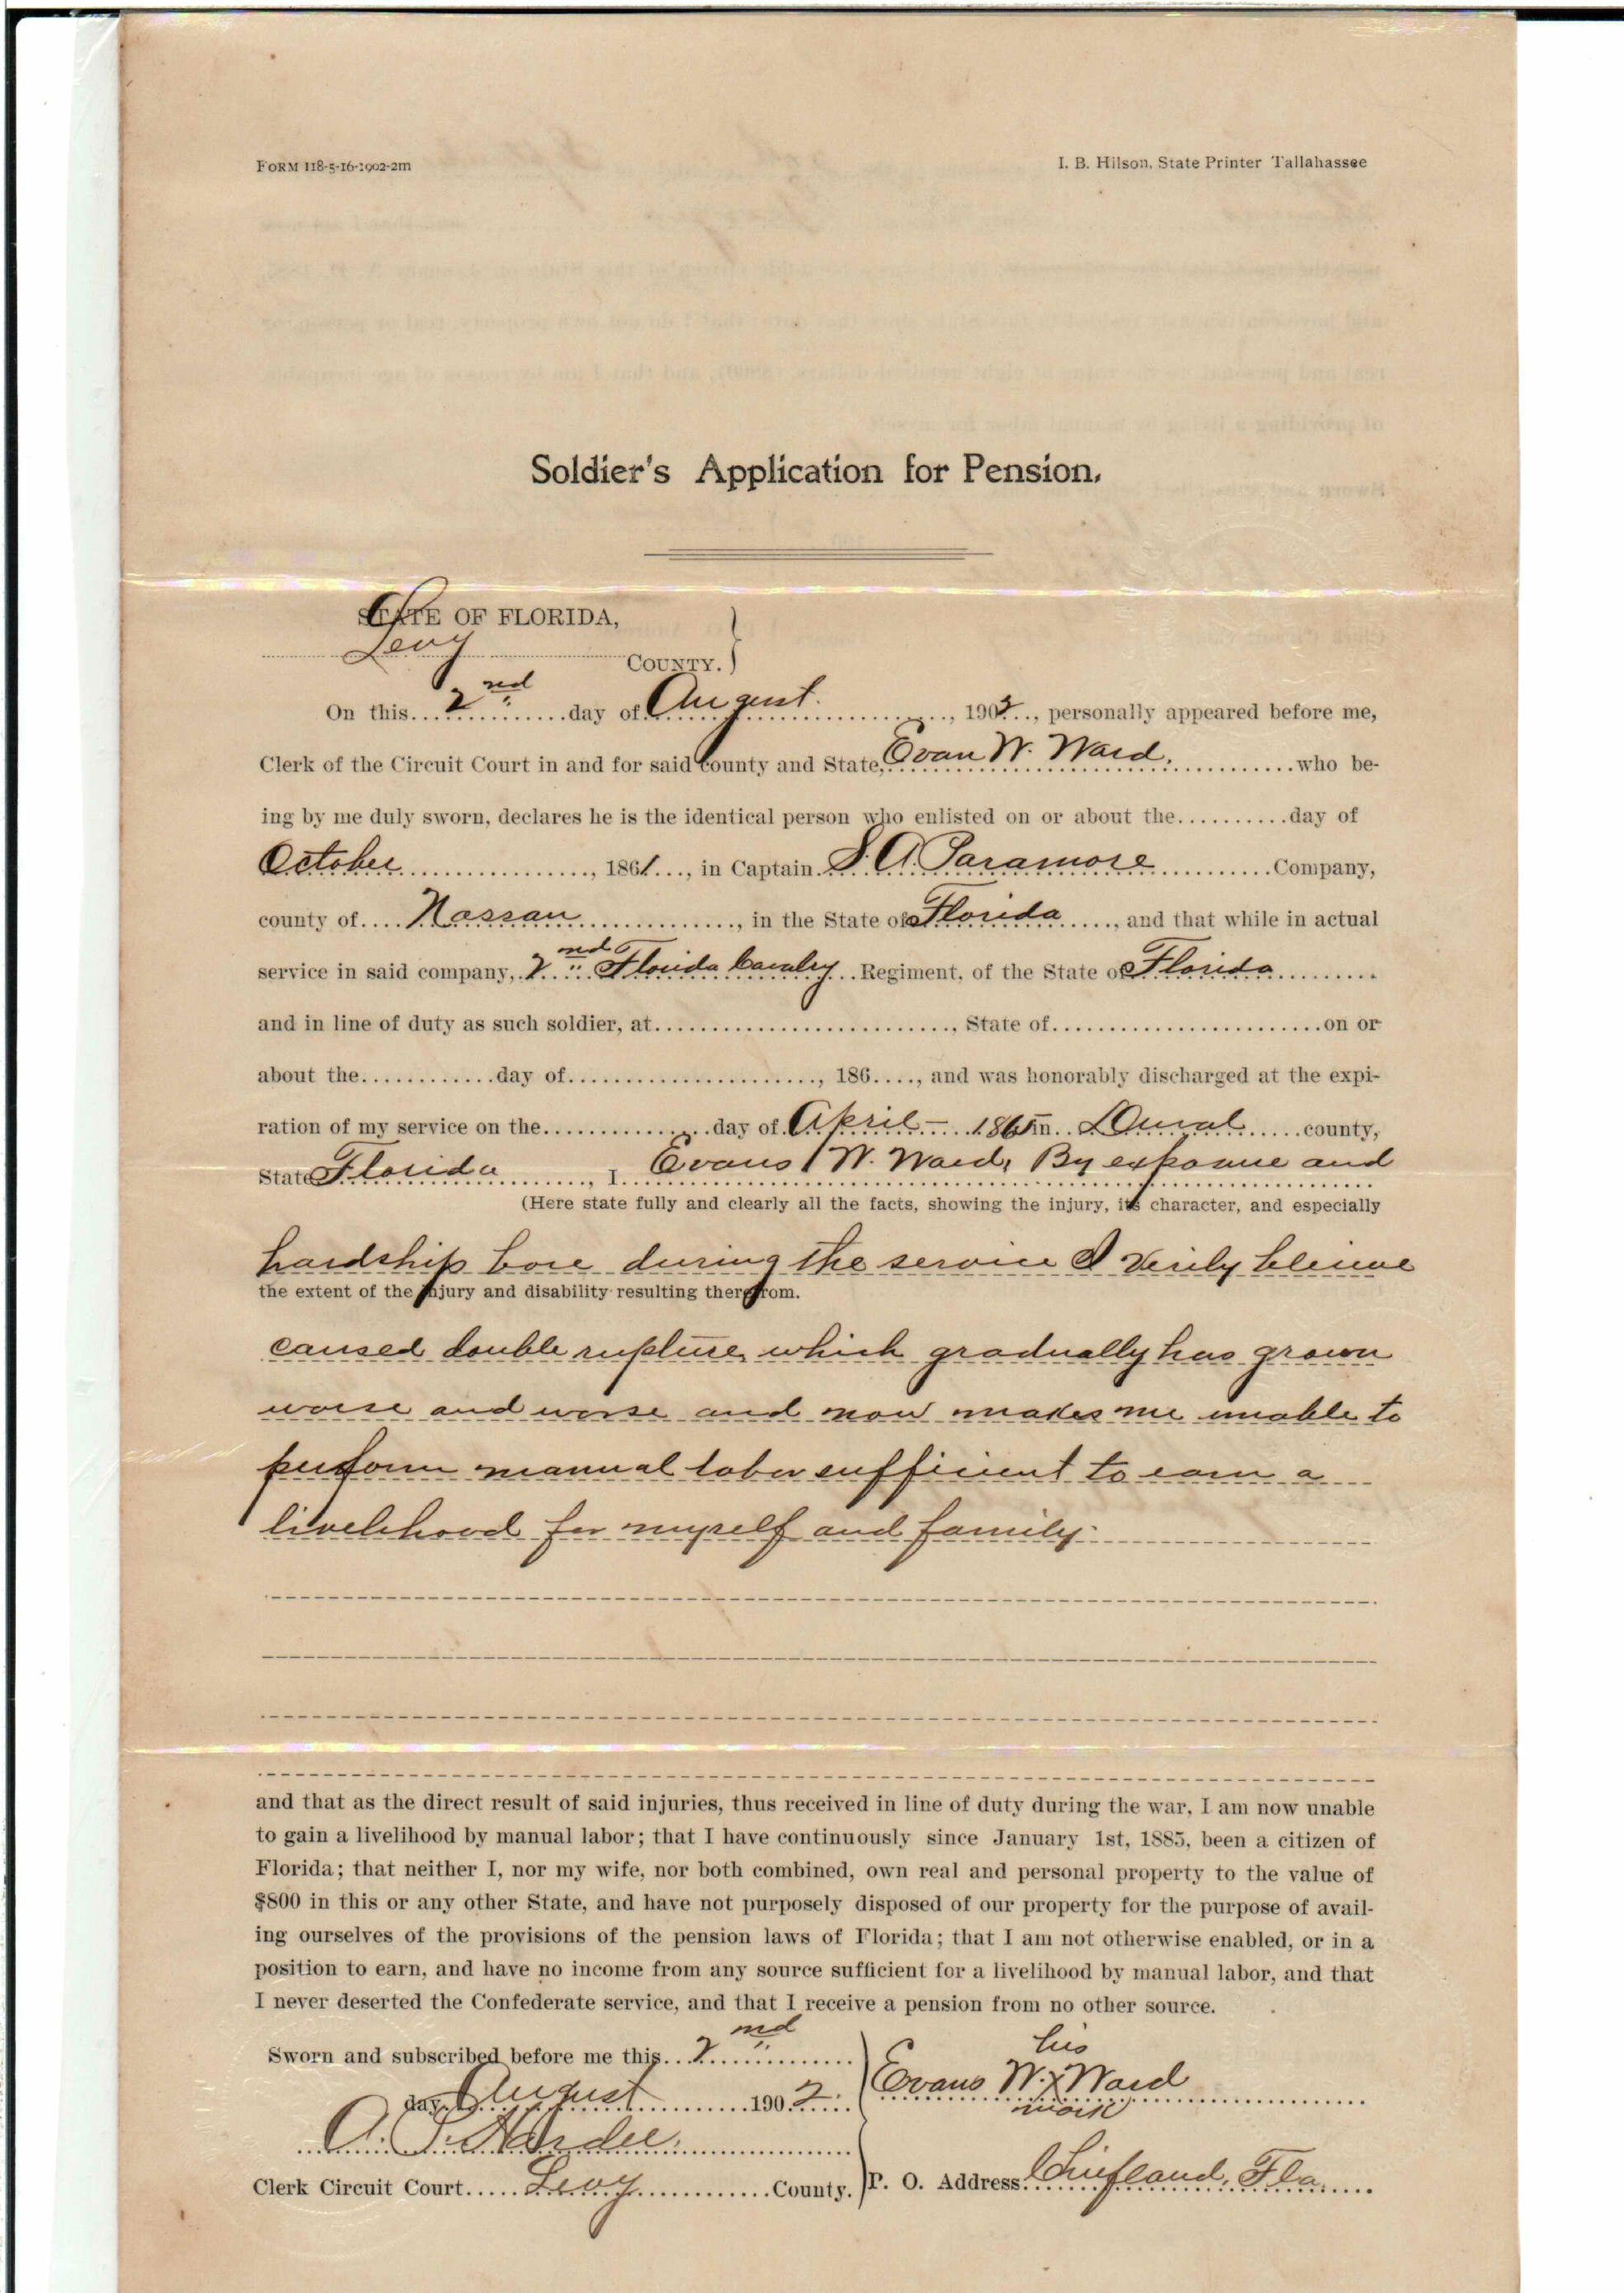 FORM 118-5-16-1902-2m
I. B. Hilson, State Printer Tallahassee
Soldier's Application for Pension.
STATE OF FLORIDA,
Levy COUNTY.
On this 2nd day of August, 1902, personally appeared before me,
Clerk of the Circuit Court in and for said county and State, Evan W. Ward, who be-
ing by me duly sworn, declares he is the identical person who enlisted on or about the..........day of
October, 1861, in Captain S. A. Paramore Company,
county of Nassau, in the State of Florida, and that while in actual
service in said company, 2nd Florida Cavalry Regiment, of the State of Florida
and in line of duty as such soldier, at.........................., State of........................on or
about the............day of......................, 186...., and was honorably discharged at the expi-
ration of my service on the...............day of April - 1865 in Duval county,
State Florida, I Evans W. Ward, By exposure and
(Here state fully and clearly all the facts, showing the injury, its character, and especially
hardship bore during the service I verily bleieve
the extent of the injury and disability resulting therefrom.
caused double rupture, which gradually has grown
worse and worse and now makes me unable to
perform manual labor sufficient to earn a
livelihood for myself and family.
and that as the direct result of said injuries, thus received in line of duty during the war, I am now unable
to gain a livelihood by manual labor; that I have continuously since January 1st, 1885, been a citizen of
Florida; that neither I, nor my wife, nor both combined, own real and personal property to the value of
$800 in this or any other State, and have not purposely disposed of our property for the purpose of avail-
ing ourselves of the provisions of the pension laws of Florida; that I am not otherwise enabled, or in a
position to earn, and have no income from any source sufficient for a livelihood by manual labor, and that
I never deserted the Confederate service, and that I receive a pension from no other source.
Sworn and subscribed before me this 2nd
day August 1902
his
Evans W. x Ward
mark
A. S. Hardee
Clerk Circuit Court Levy County.
P. O. Address Chiefland, Fla